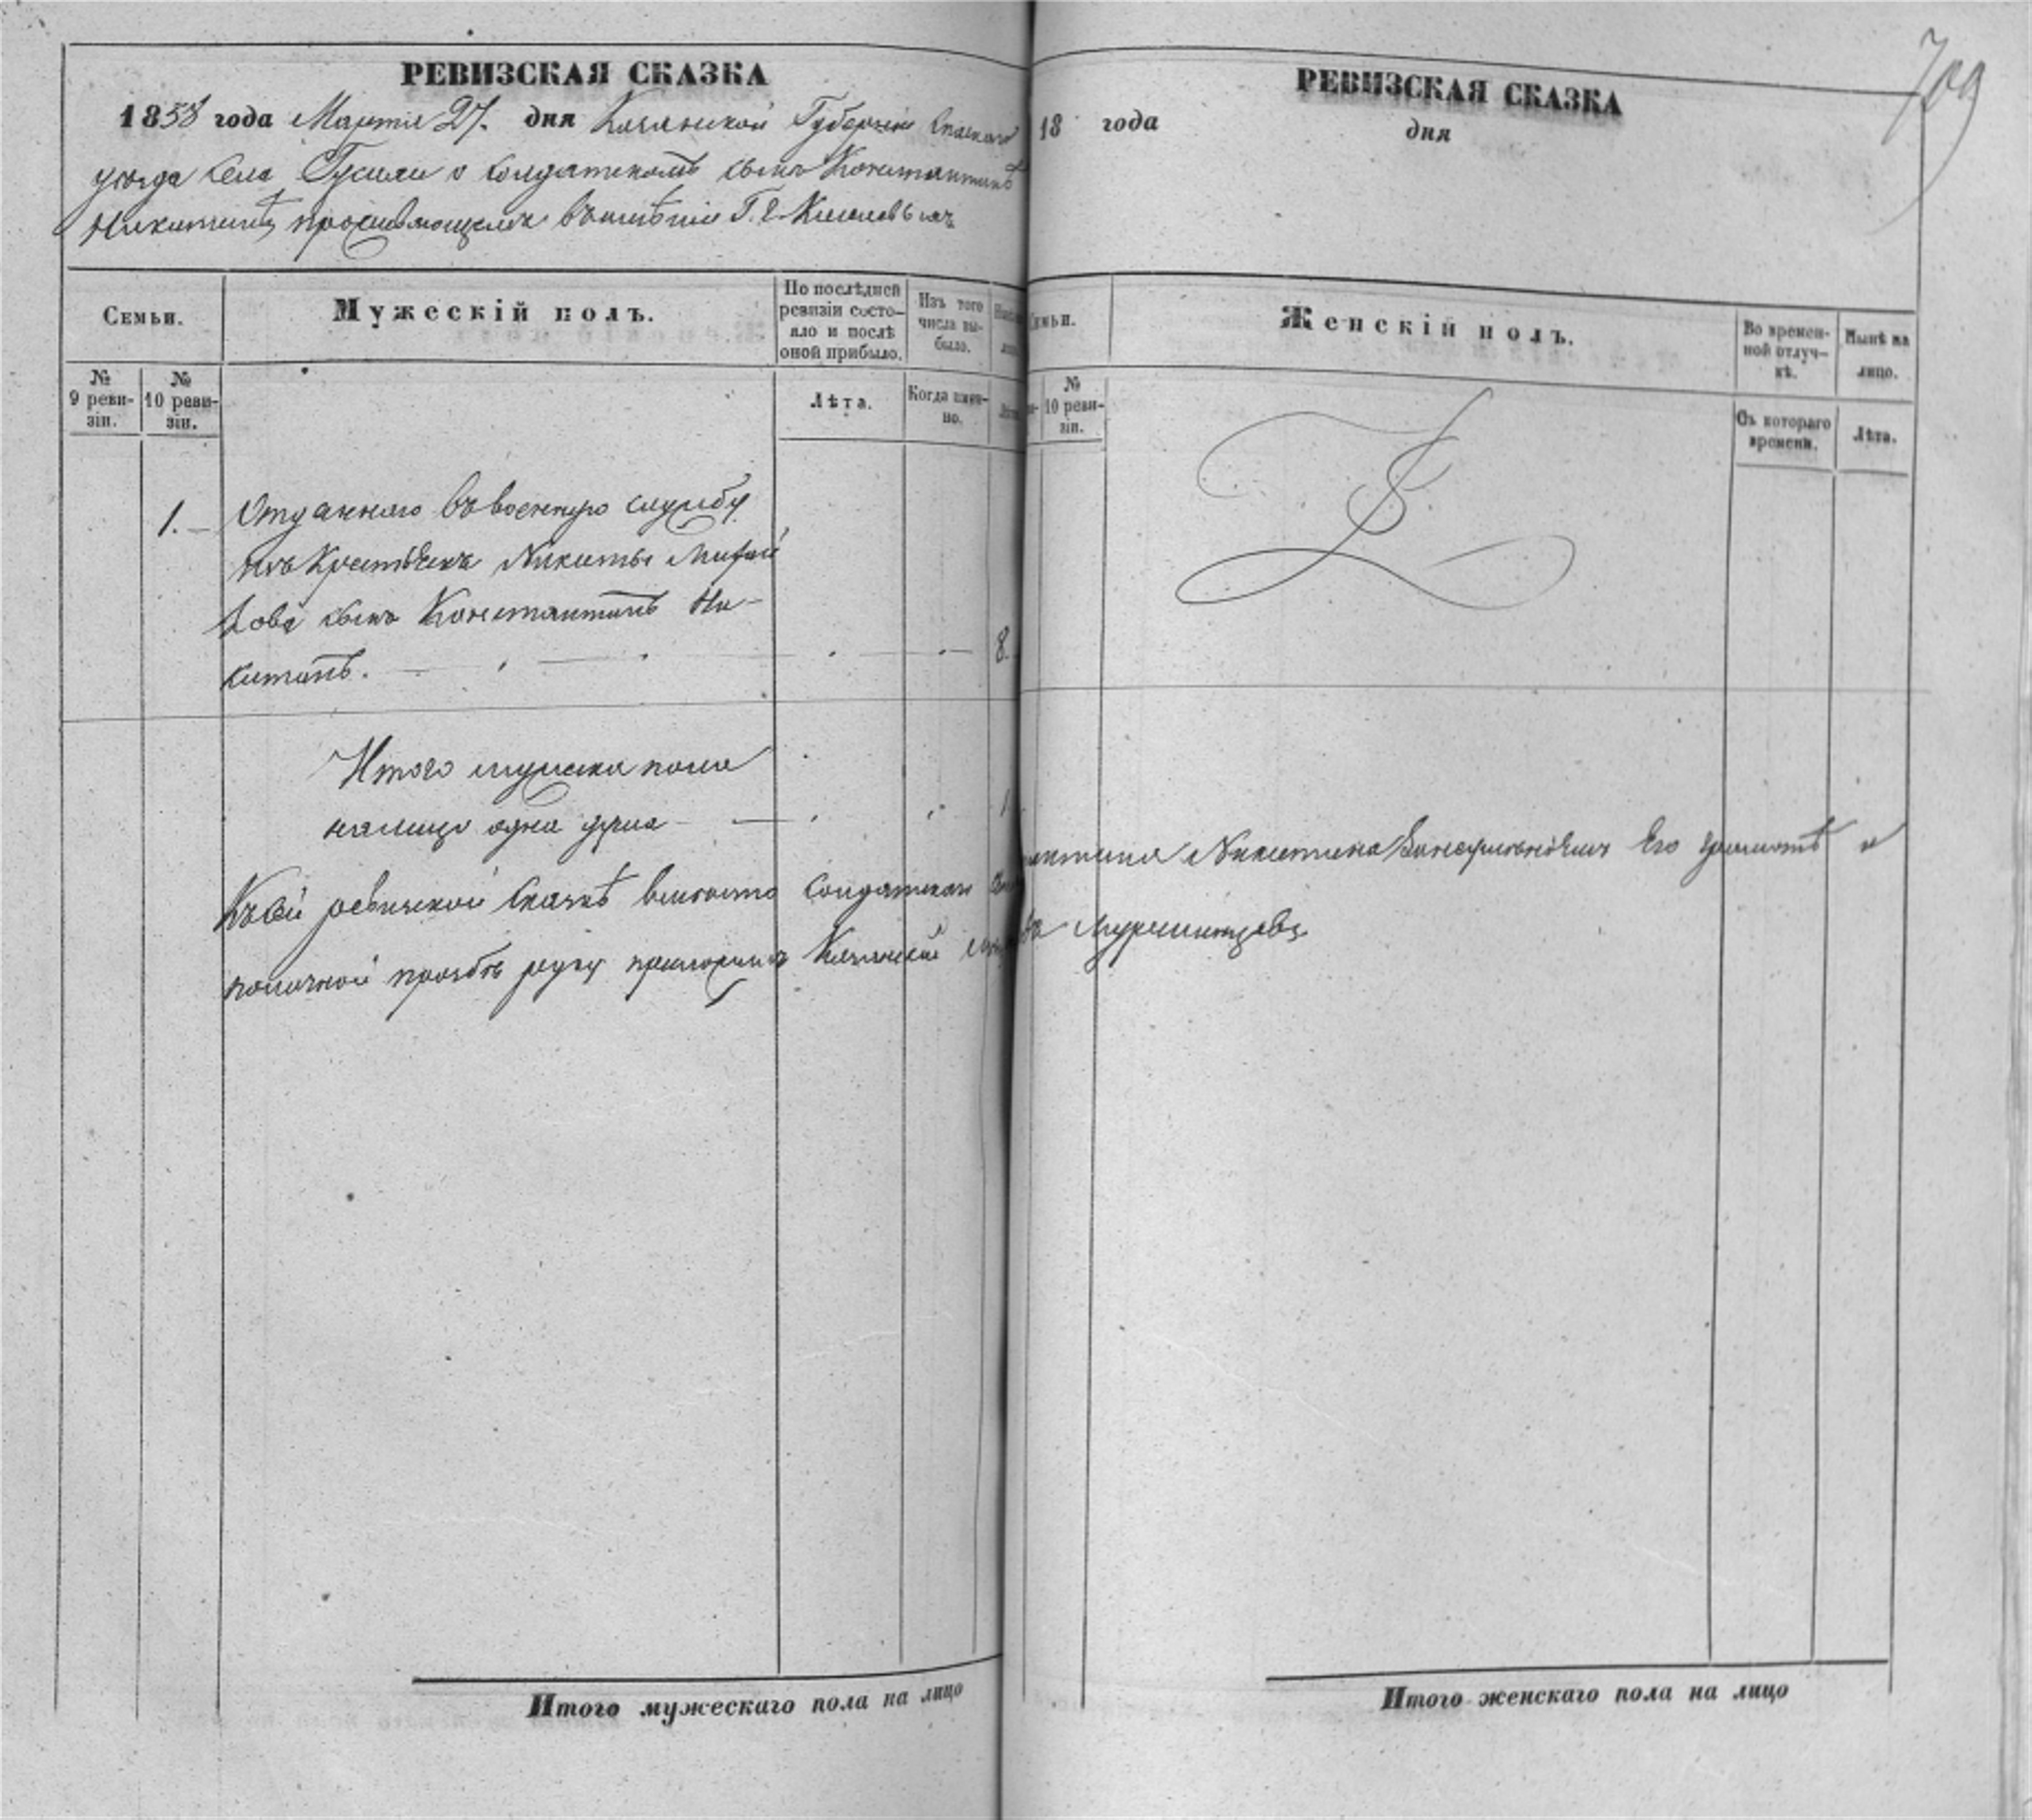 РЕВИЗСКАЯ СКАЗКА
1858 года Марта 27. дня Казанской Губерніи Спаскаго
уезда села Гусили о солдатскомъ сынѣ Константинѣ
Никитинѣ, проживающемъ въ имѣніи Г.
Семьи.
Мужескій полъ.
По послѣдней ревизіи состо-
яло и послѣ
оной прибыло.
Изъ того
числа вы-
было.
№
9 реви-
зіи.
№
10 реви-
зіи.
Лѣта.
Когда имен-
но.
1. Отданнаго въ военную службу
изъ Крестьянъ Никиты
сынъ Константинъ Ни-
китинъ. 8.
Итого мужеска пола
налицо одна душа 1
Къ сей ревизской сказкѣ вместо солдатскаго
Никитина Его
прозбѣ руку приложилъ Казанской
Итого мужескаго пола на лицо
РЕВИЗСКАЯ СКАЗКА
18 года дня
709
Женскій полъ.
Во времен-
ной отлуч-
кѣ.
Нынѣ на
лицо.
№
10 реви-
зіи.
Съ котораго
времени.
Лѣта.
Итого женскаго пола на лицо